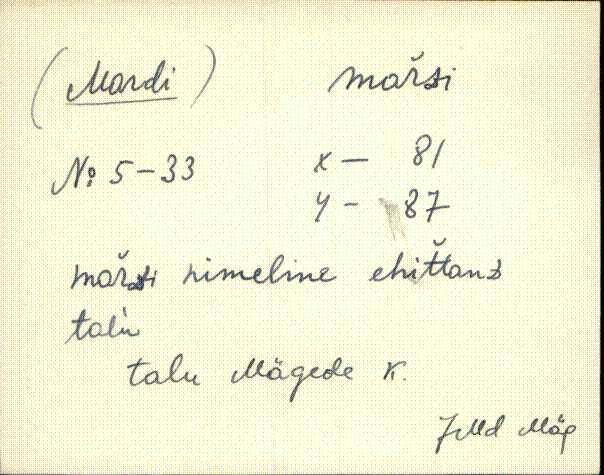 (Mardi) mařsi
№ 5-33 x — 81
y - 87
mařsi nimeline ehit̆tanɜ
talu
talu Mägede k.
JMd Mäg